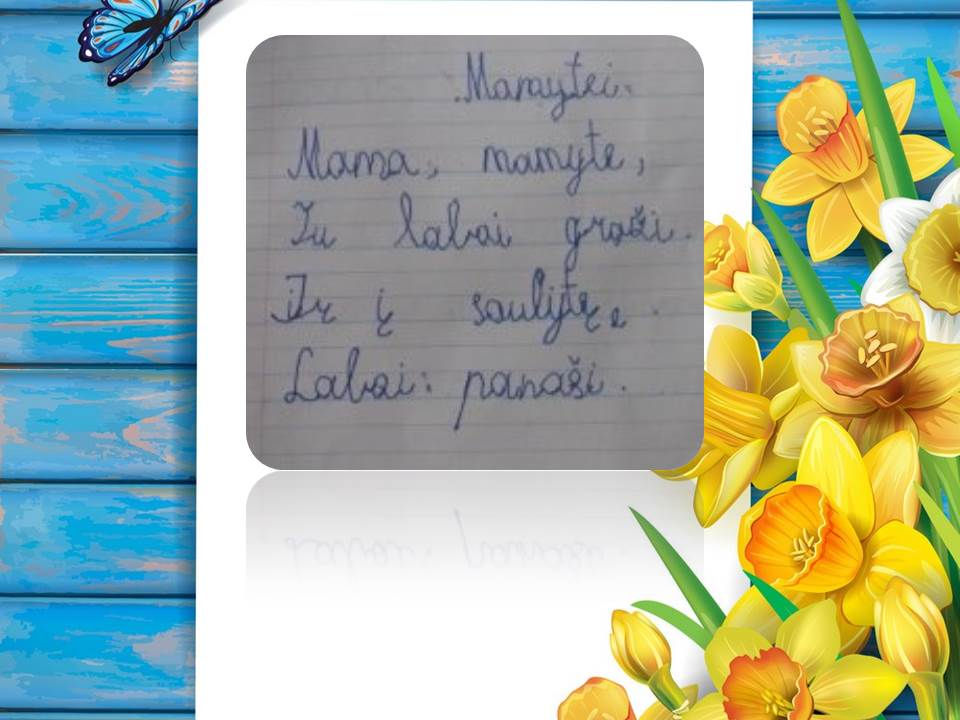 Mamytei.
Mama, mamyte,
Tu labai graži.
Ir į saulytę.
Labai panaši.